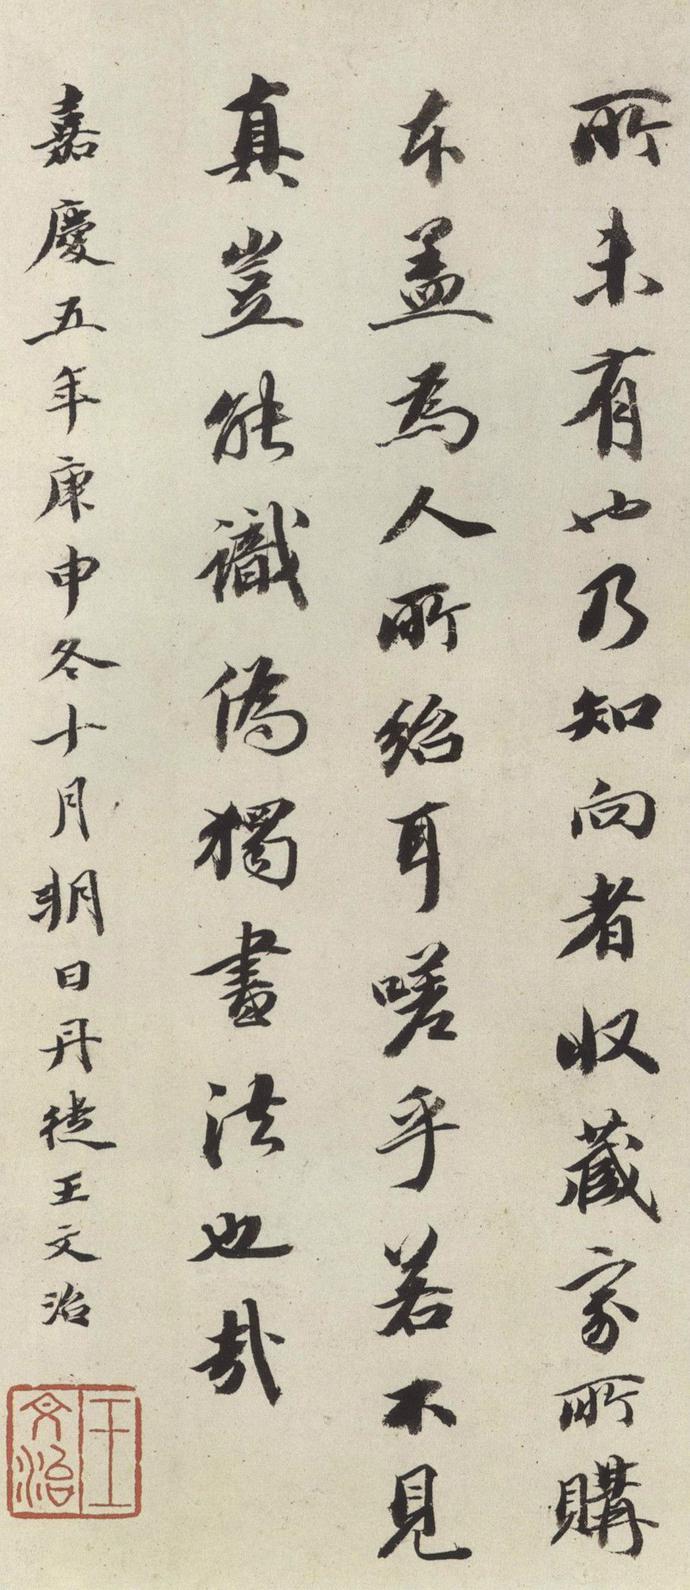 所未有也乃知向者收藏家所購
本盖為人所紿耳嗟乎若不見
真豈能識僞獨畫法也哉
嘉慶五年庚申冬十月朔日丹徒王文治
王文治